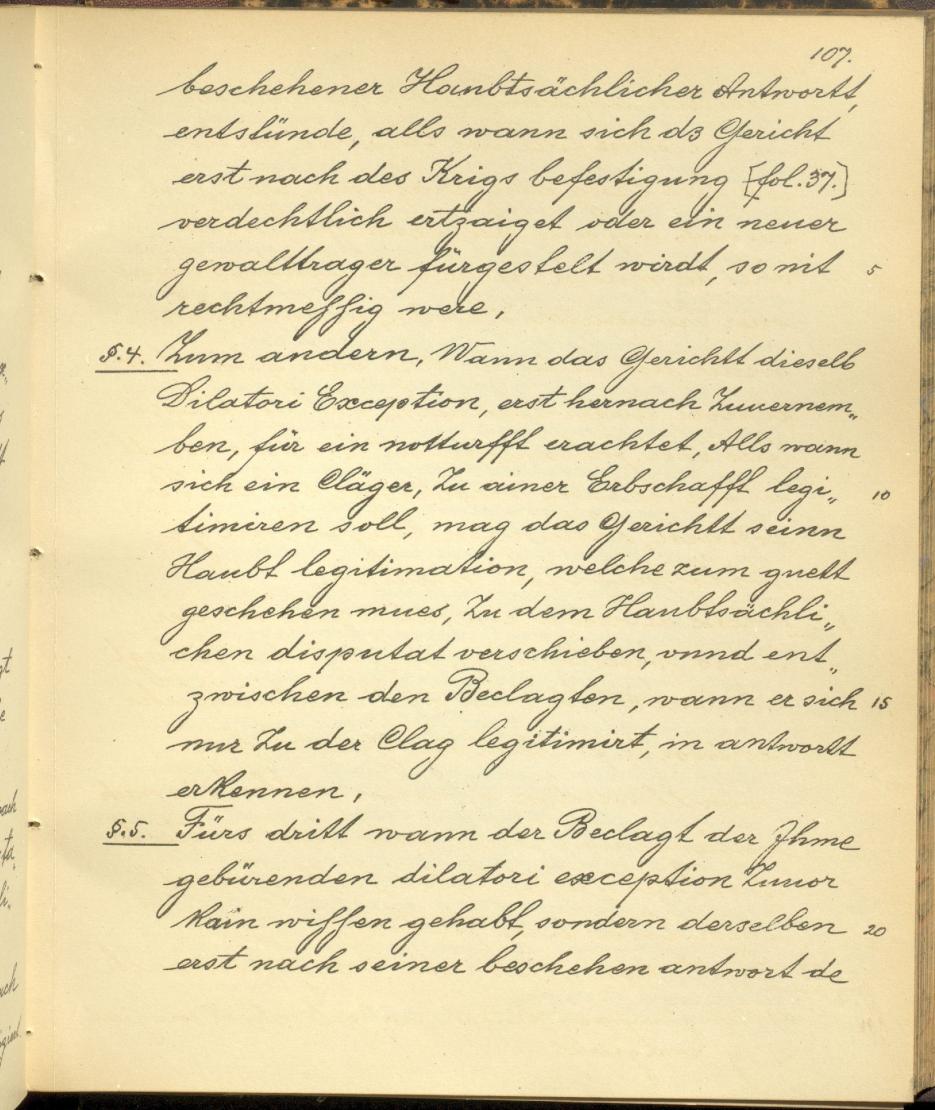 107.
beschehener Haubtsächlicher Antwortt,
entstünde, alls wann sich dz Gericht
erst nach des Krigs befestigung [fol. 37.]
verdechtlich ertzaiget oder ein neuer
gewalttrager fürgestelt wirdt, so nit 5
rechtmessig were,
§.4. Zum andern, Wann das Gerichtt dieselb
Dilatori Exception, erst hernach Zuuernem„
ben, für ein notturfft erachtet, Alls wann
sich ein Cläger, Zu ainer Erbschafft legi„ 10
timiren soll, mag das Gerichtt seinn
Haubt legitimation, welche zum guett
geschehen mues, Zu dem Haubtsächli„
chen disputat verschieben, vnnd ent„
zwischen den Beclagten, wann er sich 15
nur Zu der Clag legitimirt, in antwortt
erkennen,
§.5. Fürs dritt wann der Beclagt der Jhme
gebürenden dilatori exception Zuuor
kain wissen gehabt, sondern derselben 20
erst nach seiner beschehen antwort de